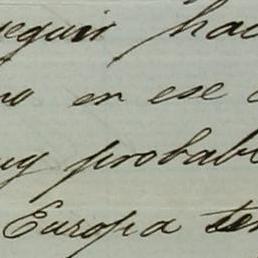 seguir hac
no en ese
uy probabl
Europa ten